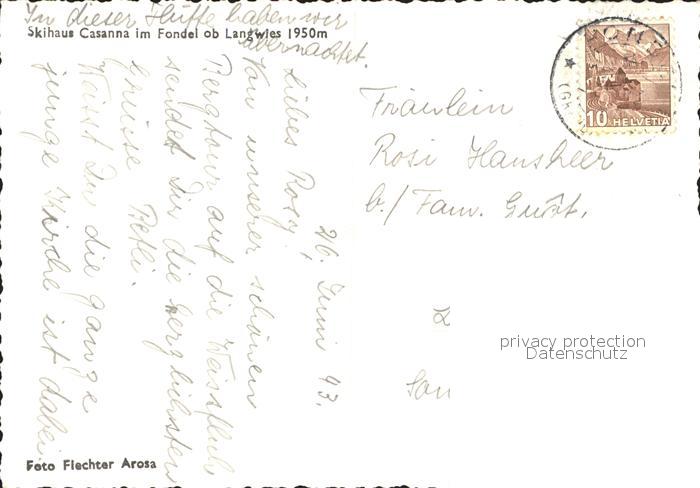 In dieser Hütte haben wir
übernachtet.
Skihaus Casanna im Fondei ob Langwies 1950m
26. Juni 43.
Liebes Rosy,
Von unserer schönen
Bergtour auf die Weissfluh
sendet Dir die herzlichsten
Grüsse Betli.
Weisst Du die ganze
junge Kirche ist dabei.
Foto Flechter Arosa
HELVETIA
10
Fräulein
Rosi Hausheer
b./ Fam.
privacy protection
Datenschutz